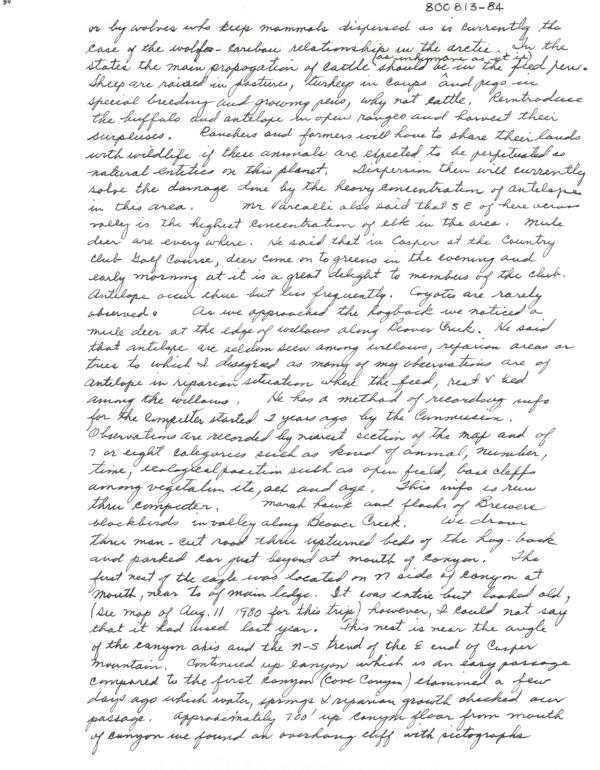 800813-84
or by wolves who keep mammals dispersed as is currently the
case of the wolfes-carebou relationship in the arctic. In the
states the main propagation of cattle should be in the feed pens.
Sheep are raised in pasture, turkey in coups and pigs in
special breeding and growing pens, why not cattle. Reintroduce
the buffalo and antelope in open ranges and harvest their
surpluses. Ranchers and farmers will have to share their lands
with wildlife if these animals are expected to be perpetuated as
natural entities on this planet. Dispersion then will currently
solve the damage done by the heavy concentration of antelope
in this area. Mr Varcalli also said that S E of here
valley is the highest concentration of elk in the area. Mule
deer are everywhere. He said that in Casper at the Country
Club Golf Course, deer come on to greens in the evening and
early morning at it is a great delight to members of the club.
Antelope occur but less frequently. Coyotes are rarely
observed. As we approached the hogback we noticed a
mule deer at the edge of willows along Beaver Creek. He said
that antelope are seldom seen among willows, reparian areas or
trees to which I disagree as many of my observations are of
antelope in riparian situation where the feed, rest & bed
among the willows. He has a method of recording info
for the computer started 2 years ago by the Commission.
Observations are recorded by nearest section of the map and of
7 or eight categories such as kind of animal, number,
time, ecological position such as open field, base cleffs
among vegetation etc, sex and age. This info is run
thru computer. Marsh hawk and flocks of Brewers
blackbirds in valley along Beaver Creek. We drove
thru man-cut road thru upturned beds of the hog-back
and parked car just beyond at mouth of canyon. The
first nest of the eagle was located on N side of canyon at
mouth, near to of main ledge. It was entire but looked old,
(see map of Aug. 11 1980 for this trip) however, I could not say
that it had used last year. This nest is near the angle
of the canyon axis and the N-S trend of the E end of Casper
Mountain. Continued up canyon which is an easy passage
compared to the first canyon (Cove Canyon) a few
days ago which water, springs & reparian growth checked our
passage. Approximately 700' up canyon floor from mouth
of canyon we found an overhang cliff with pictographs